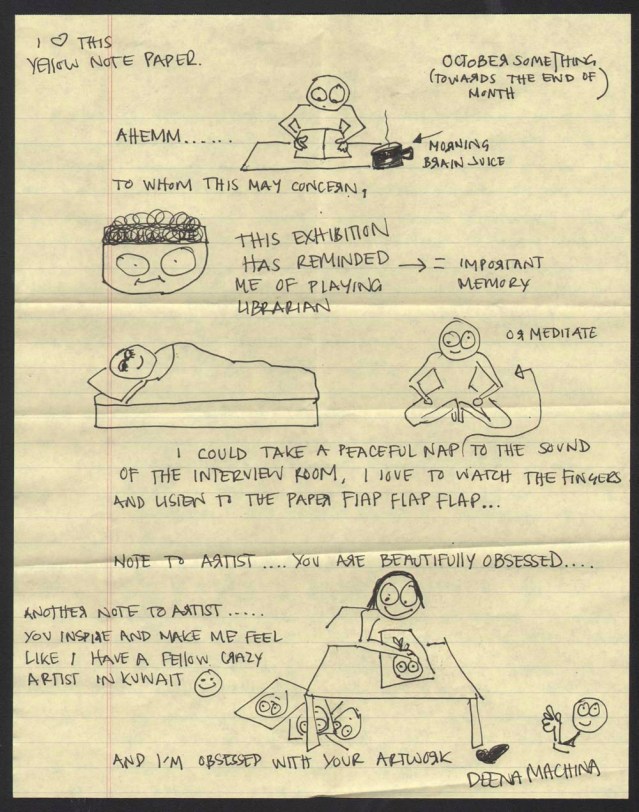 I ♡ THIS
YELLOW NOTE PAPER.
OCTOBER SOMETHING
(TOWARDS THE END OF
MONTH)
AHEMM......
MORNING
BRAIN JUICE
TO WHOM THIS MAY CONCERN,
THIS EXHIBITION
HAS REMINDED
ME OF PLAYING
LIBRARIAN
→ = IMPORTANT
MEMORY
OR MEDITATE
I COULD TAKE A PEACEFUL NAP TO THE SOUND
OF THE INTERVIEW ROOM, I LOVE TO WATCH THE FINGERS
AND LISTEN TO THE PAPER FLAP FLAP FLAP...
NOTE TO ARTIST .... YOU ARE BEAUTIFULLY OBSESSED....
ANOTHER NOTE TO ARTIST .....
YOU INSPIRE AND MAKE ME FEEL
LIKE I HAVE A FELLOW CRAZY
ARTIST IN KUWAIT ☺
AND I'M OBSESSED WITH YOUR ARTWORK
DEENA MACHINA